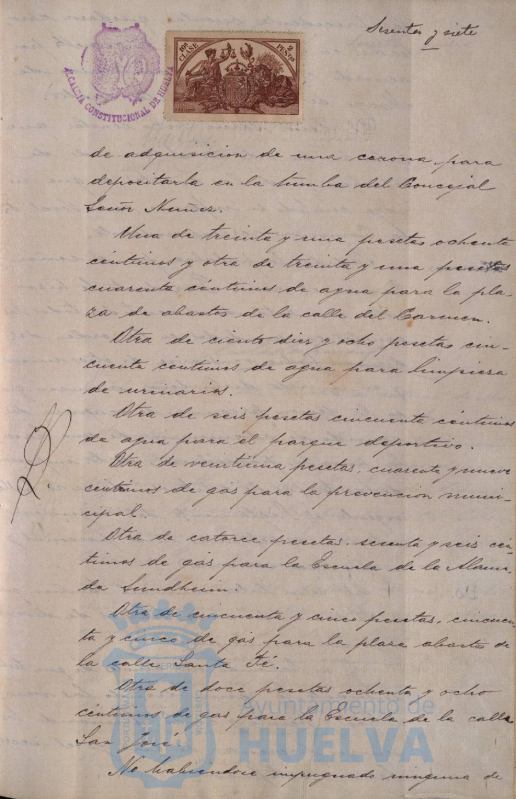 Sesenta y siete
ALCALDIA CONSTITUCIONAL DE HUELVA
10ª CLASE
2 PESETAS
de adquisicion de una corona para
depositarla en la tumba del Concejal
Señor Nuñez.
Una de treinta y una pesetas ochenta
céntimos y otra de treinta y una pesetas
cuarenta céntimos de agua para la pla-
za de abastos de la calle del Carmen.
Otra de ciento diez y ocho pesetas cin-
cuenta centimos de agua para limpieza
de urinarios.
Otra de seis pesetas cincuenta céntimos
de agua para el parque deportivo.
Otra de veintiuna pesetas, cuarenta y nueve
centimos de gas para la prevencion muni-
cipal.
Otra de catorce pesetas, sesenta y seis cén-
timos de gas para la Escuela de la Alame-
da Sundheim.
Otra de cincuenta y cinco pesetas, cincuen-
ta y cinco de gas para la plaza abastos de
la calle Santa Fé.
Otra de doce pesetas ochenta y ocho
céntimos de gas para la Escuela de la calle
San José.
No habiendose impugnado ninguna de
Ayuntamiento de
HUELVA